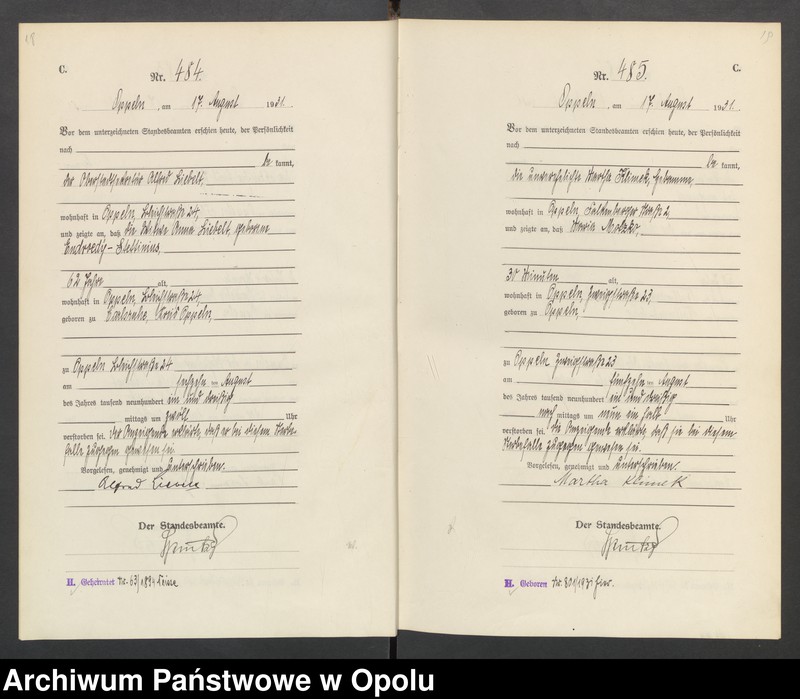 C.
Nr. 484.
Oppeln, am 17. August 1931.
Vor dem unterzeichneten Standesbeamten erschien heute, der Persönlichkeit
nach
be kannt,
der Oberstadtsekretär Alfred Liebelt,
wohnhaft in Oppeln, 24,
und zeigte an, daß die Witwe Anna Liebelt geborene
Endrzedy - Stettinius,
62 Jahre alt,
wohnhaft in Oppeln, 24,
geboren zu Karlsruhe, Kreis Oppeln,
zu Oppeln 24
am sechzehn ten August
des Jahres tausend neunhundert ein und dreißig
mittags um zwölf Uhr
verstorben sei. Der Anzeigende erklärte, daß er bei diesem Sterbe-
falle zugegen gewesen sei.
Vorgelesen, genehmigt und unterschrieben.
Alfred
Der Standesbeamte.
H. Geheiratet Nr. 63/1894
C.
Nr. 485.
Oppeln, am 17. August 1931.
Vor dem unterzeichneten Standesbeamten erschien heute, der Persönlichkeit
nach
be kannt,
die unverehelichte Martha Klimek, Hebamme,
wohnhaft in Oppeln, Falkenberger Straße 2,
und zeigte an, daß Maria Motzko,
30 Minuten alt,
wohnhaft in Oppeln, Zweigstraße 23,
geboren zu Oppeln,
zu Oppeln Zweigstraße 23
am fünfzehn ten August
des Jahres tausend neunhundert ein und dreißig
nach mittags um neun ein halb Uhr
verstorben sei. Die Anzeigende erklärte daß sie bei diesem
Sterbefalle zugegen gewesen sei.
Vorgelesen, genehmigt und unterschrieben.
Martha Klimek
Der Standesbeamte.
H. Geboren Nr. 801/1931 hier.
Archiwum Państwowe w Opolu